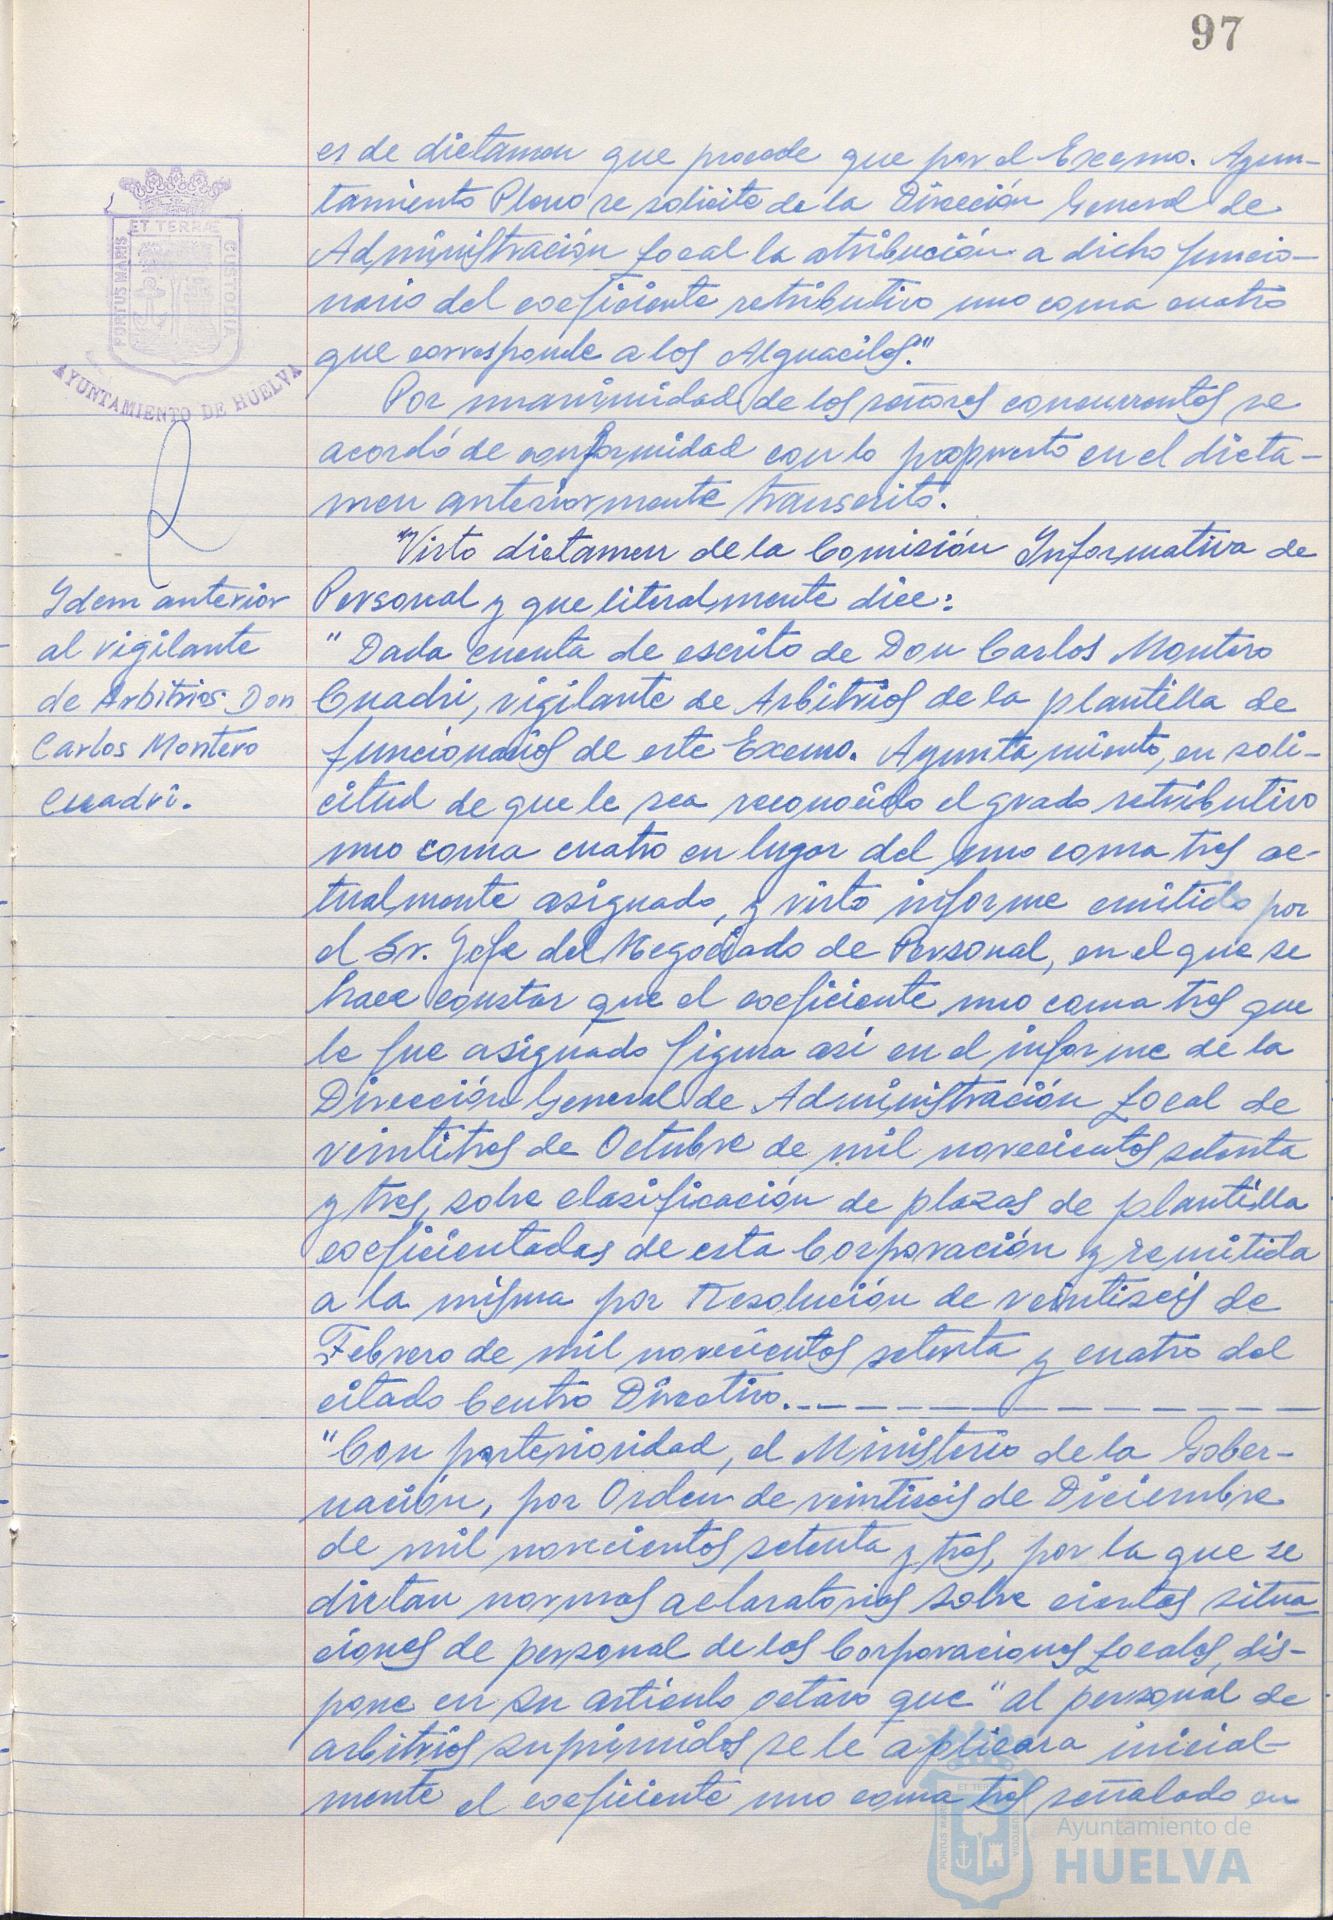 97
es de dictamen que procede que por el Excmo. Ayun-
tamiento Pleno se solicite de la Dirección General de
Administración Local la atribución a dicho funcio-
nario del coeficiente retributivo uno coma cuatro
que corresponde a los Alguaciles."
Por unanimidad de los señores concurrentes se
acordó de conformidad con lo propuesto en el dicta-
men anteriormente transcrito.
"Visto dictamen de la Comisión Informativa de
Personal y que literalmente dice:
" Dada cuenta de escrito de Don Carlos Montero
Cuadri, vigilante de Arbitrios de la plantilla de
funcionarios de este Excmo. Ayuntamiento, en soli-
citud de que le sea reconocido el grado retributivo
uno coma cuatro en lugar del uno coma tres ac-
tualmente asignado, y visto informe emitido por
el Sr. Jefe del Negociado de Personal, en el que se
hace constar que el coeficiente uno coma tres que
le fue asignado figura así en el informe de la
Dirección General de Administración Local de
veintitres de Octubre de mil novecientos setenta
y tres, sobre clasificación de plazas de plantilla
coeficientadas de esta Corporación y remitida
a la misma por Resolución de veintiseis de
Febrero de mil novecientos setenta y cuatro del
citado Centro Directivo.
"Con posterioridad, el Ministerio de la Gober-
nación, por Orden de veintiseis de Diciembre
de mil novecientos setenta y tres, por la que se
dictan normas aclaratorias sobre ciertas situa
ciones de personal de las Corporaciones Locales, dis-
pone en su artículo octavo que "al personal de
arbitrios suprimidos se le aplicara inicial-
mente el coeficiente uno coma tres señalado en
ET TERRÆ
PORTUS MARIS
CUSTODIA
AYUNTAMIENTO DE HUELVA
Idem anterior
al vigilante
de Arbitrios Don
Carlos Montero
Cuadri.
ET TERRÆ
PORTUS MARIS
CUSTODIA
Ayuntamiento de
HUELVA